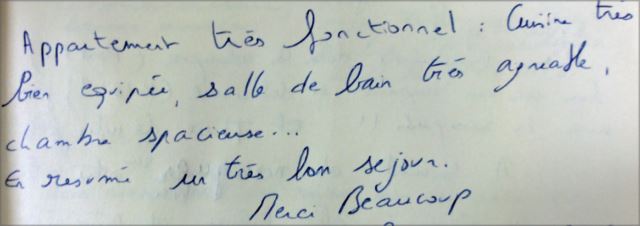 Appartement très fonctionnel : Cuisine très
bien equipée, salle de bain très agréable,
chambre spacieuse...
En resumé un très bon sejour.
Merci Beaucoup